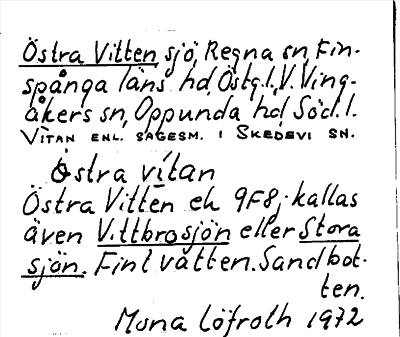 Östra Vitten sjö, Regna sn, Fin-
spånga läns hd, Östg.l., V. Ving-
åkers sn, Oppunda hd, Söd. l.
VITAN ENL. SAGESM. I SKEDEVI SN.
Östra vítan
Östra Vitten ek 9F8j kallas
även Vittbrosjön eller Stora
sjön. Fint vatten. Sandbot-
ten.
Mona Löfroth 1972